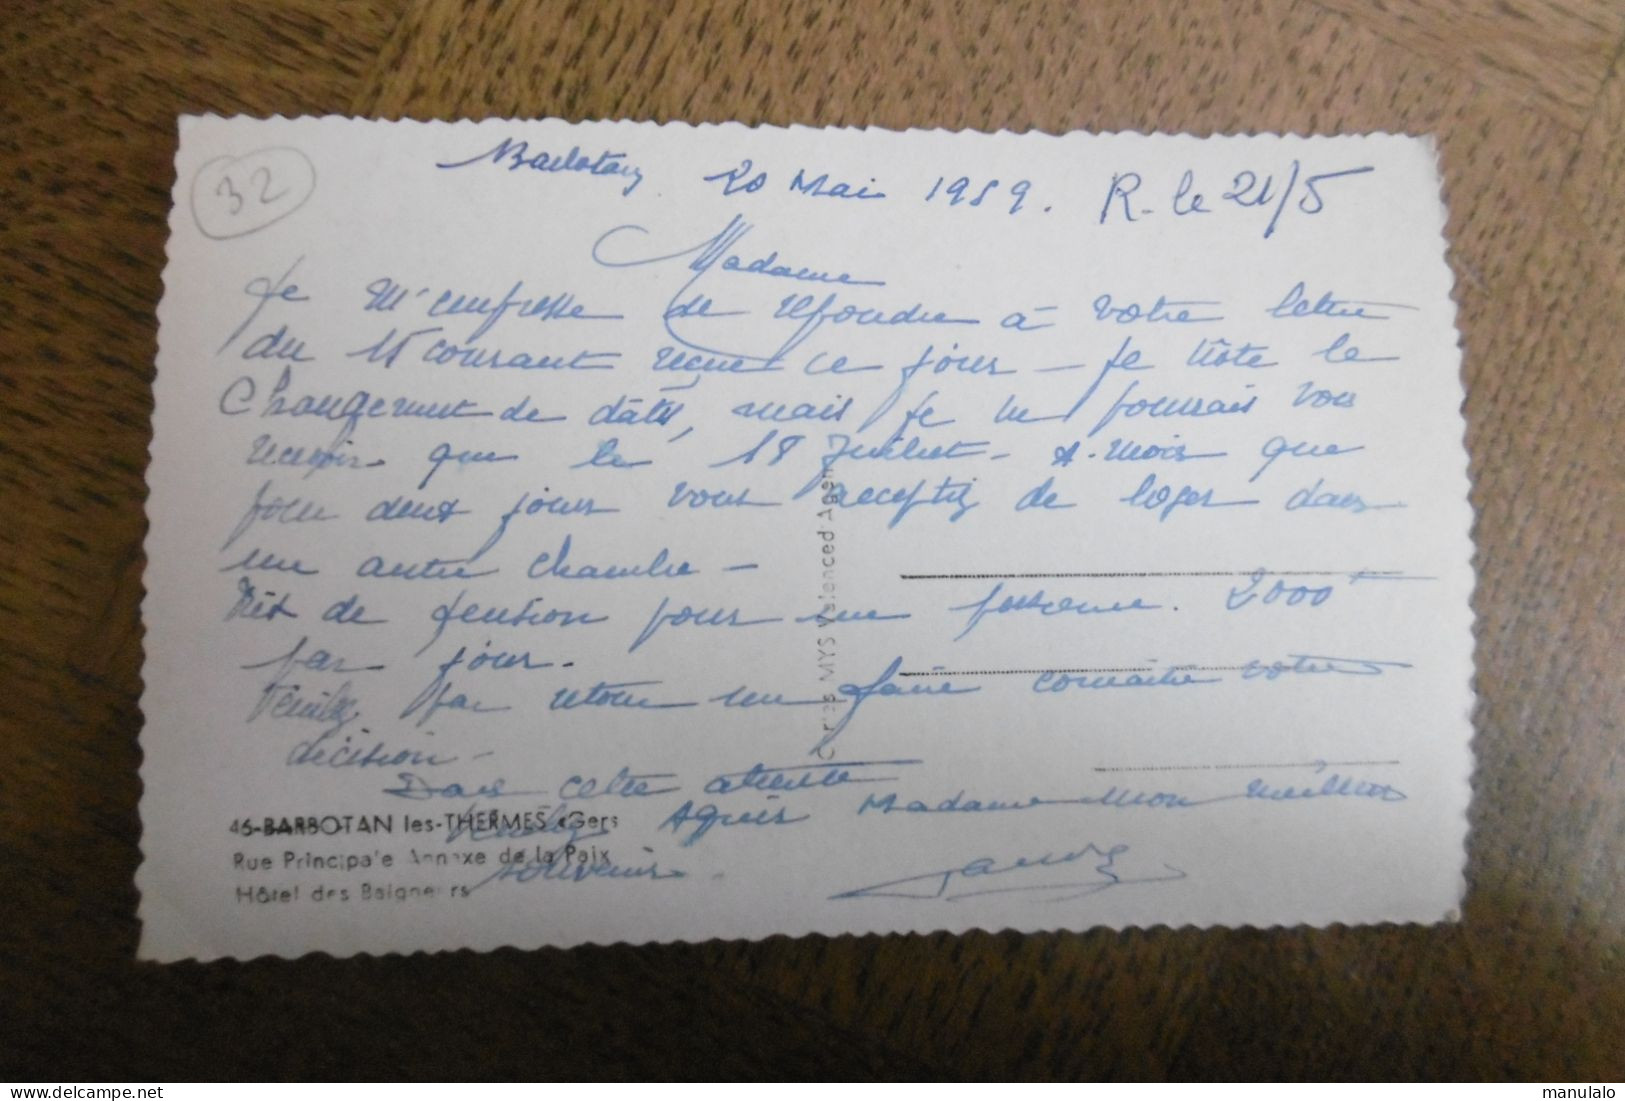 32
Barbotan 20 Mai 1959. R. le 21/5
Madame
Je m'empresse de répondre à votre lettre
du 15 courant reçue ce jour - Je note le
Changement de date, mais je ne pourrais vous
recevoir que le 18 Juillet - A moins que
pour deux jours vous acceptiez de loger dans
une autre chambre -
Prix de pension pour une personne. 2000F
par jour.
Veuillez par retour me faire connaître votre
décision -
Dans cette attente
Veuillez Agréer Madame mon meilleur
souvenir.
46-BARBOTAN les-THERMES (Gers
Rue Principale Annexe de la Paix
Hôtel des Baigneurs
Cartes MYS Valence d'Agen
manulalo